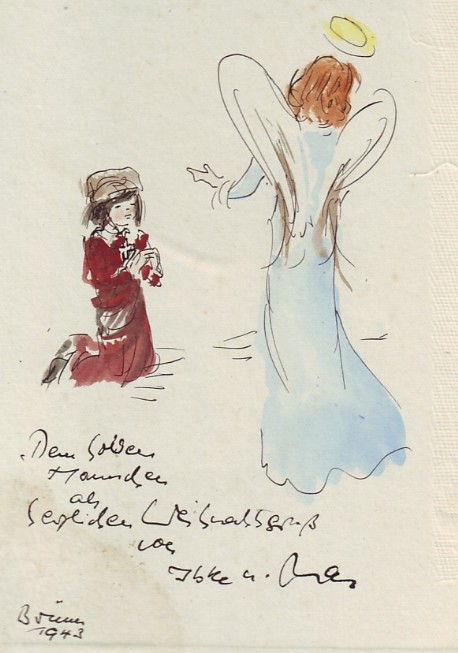 Dem lieben
Hannchen
als
herzlichen Weihnachtsgruß
von
u.
Brünn
1943